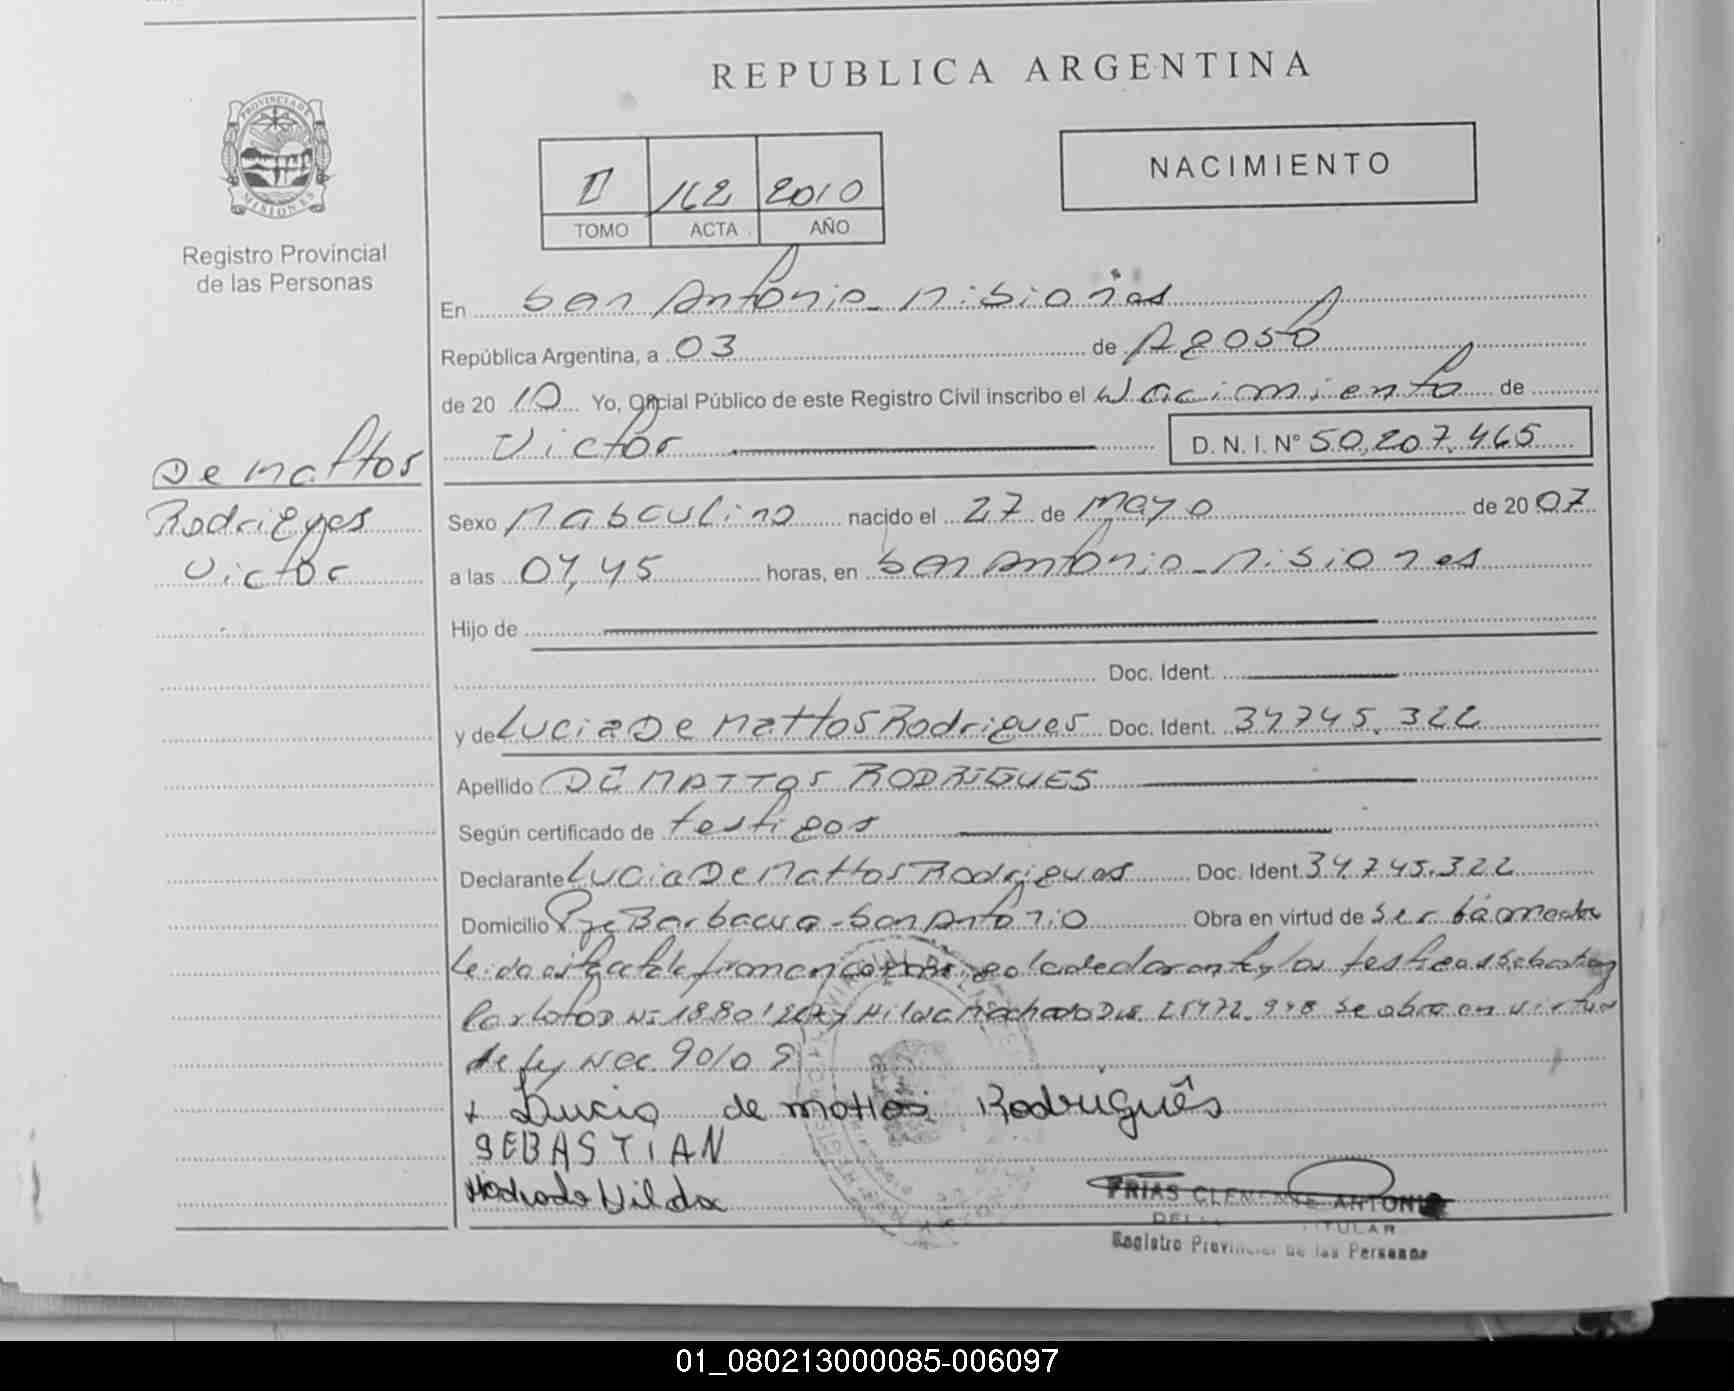 REPUBLICA ARGENTINA
PROVINCIA DE
MISIONES
Registro Provincial
de las Personas
II 162 2010
TOMO ACTA AÑO
NACIMIENTO
En San Antonio - Misiones
República Argentina, a 03 de Agosto
de 20 10 Yo, Oficial Público de este Registro Civil inscribo el Nacimiento de
Victor D. N. I. N° 50,207.465
De Mattos
Rodrigues
Victor
Sexo Masculino nacido el 27 de Mayo de 20 07
a las 04,45 horas, en San Antonio - Misiones
Hijo de
Doc. Ident.
y de Lucia De Mattos Rodrigues Doc. Ident. 34.745.322
Apellido DE MATTOS RODRIGUES
Según certificado de testigos
Declarante Lucia De Mattos Rodrigues Doc. Ident. 34.745.322
Domicilio Pje Barbacua - San Antonio Obra en virtud de Ser la madre
Leida el acta la firman conmigo la declarante y los testigos Sebastian
DNI y Hilda Machado DNI 25472.948 Se obra en virtud
de ley Nec. 90/09
x Lucia de mattos Rodriguês
SEBASTIAN
Machado Hilda
FRIAS CLEMENTE ANTONIO
TITULAR
Registro Provincial de las Personas
01_080213000085-006097